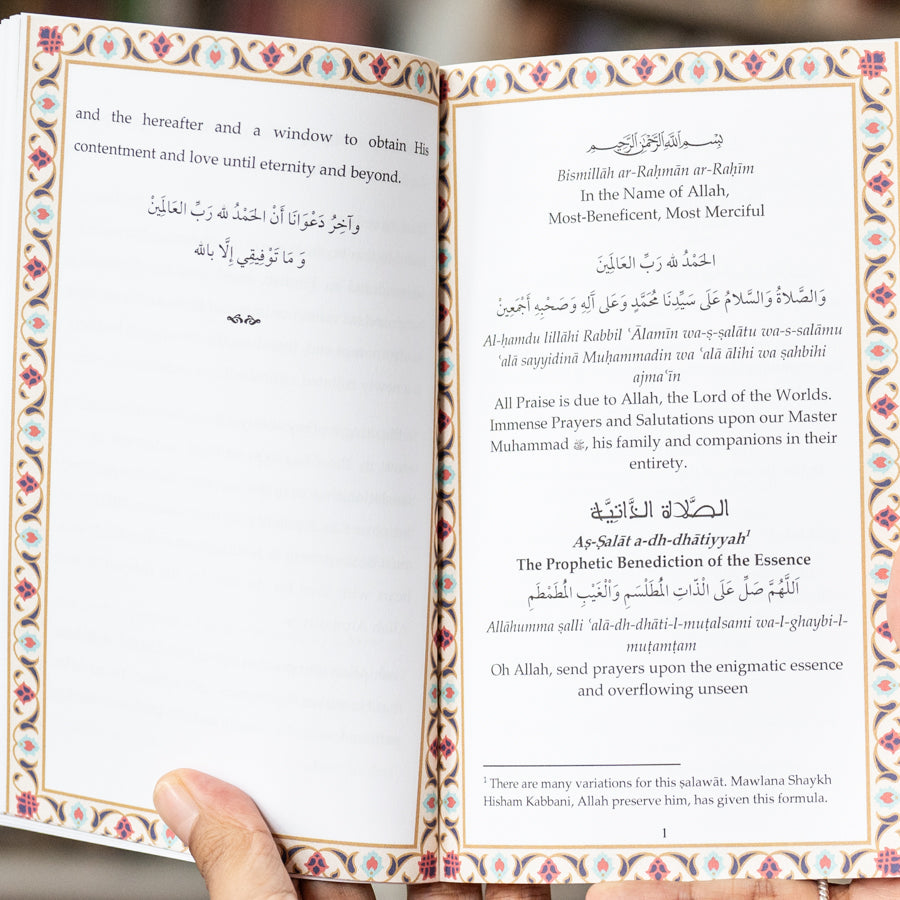 and the hereafter and a window to obtain His
contentment and love until eternity and beyond.
وآخِرُ دَعْوَانَا أَنْ الحَمْدُ لله رَبِّ العَالَمِيْنْ
وَ مَا تَوْفِيْقِي إِلَّا بالله
بِسْمِ اللَّهِ الرَّحْمَٰنِ الرَّحِيمِ
Bismillāh ar-Raḥmān ar-Raḥīm
In the Name of Allah,
Most-Beneficent, Most Merciful
الحَمْدُ لله رَبِّ العَالَمِيْنَ
وَالصَّلاةُ وَالسَّلامُ عَلَى سَيِّدِنَا مُحَمَّدٍ وَعَلى آلِهِ وَصَحْبِهِ أَجْمَعِيْنْ
Al-ḥamdu lillāhi Rabbil ʿĀlamīn wa-ṣ-ṣalātu wa-s-salāmu
ʿalā sayyidinā Muḥammadin wa ʿalā ālihi wa ṣahbihi
ajmaʿīn
All Praise is due to Allah, the Lord of the Worlds.
Immense Prayers and Salutations upon our Master
Muhammad ﷺ, his family and companions in their
entirety.
الصَّلَاة الذَّاتِيَّة
Aṣ-Ṣalāt a-dh-dhātiyyah¹
The Prophetic Benediction of the Essence
اَللَّهُمَّ صَلِّ عَلَى الْذَّاتِ الْمُطَلْسَمِ وَاْلغَيْبِ الْمُطَمْطَمِ
Allāhumma ṣalli ʿalā-dh-dhāti-l-muṭalsami wa-l-ghaybi-l-
muṭamṭam
Oh Allah, send prayers upon the enigmatic essence
and overflowing unseen
¹ There are many variations for this ṣalawāt. Mawlana Shaykh
Hisham Kabbani, Allah preserve him, has given this formula.
1